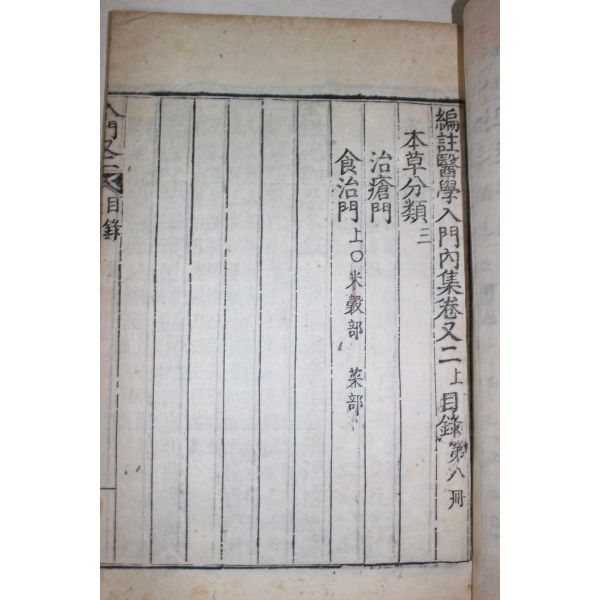 編註醫學入門內集卷又二上目錄 第八冊
本草分類三
治瘡門
食治門上〇米穀部 菜部
入門卷二目錄